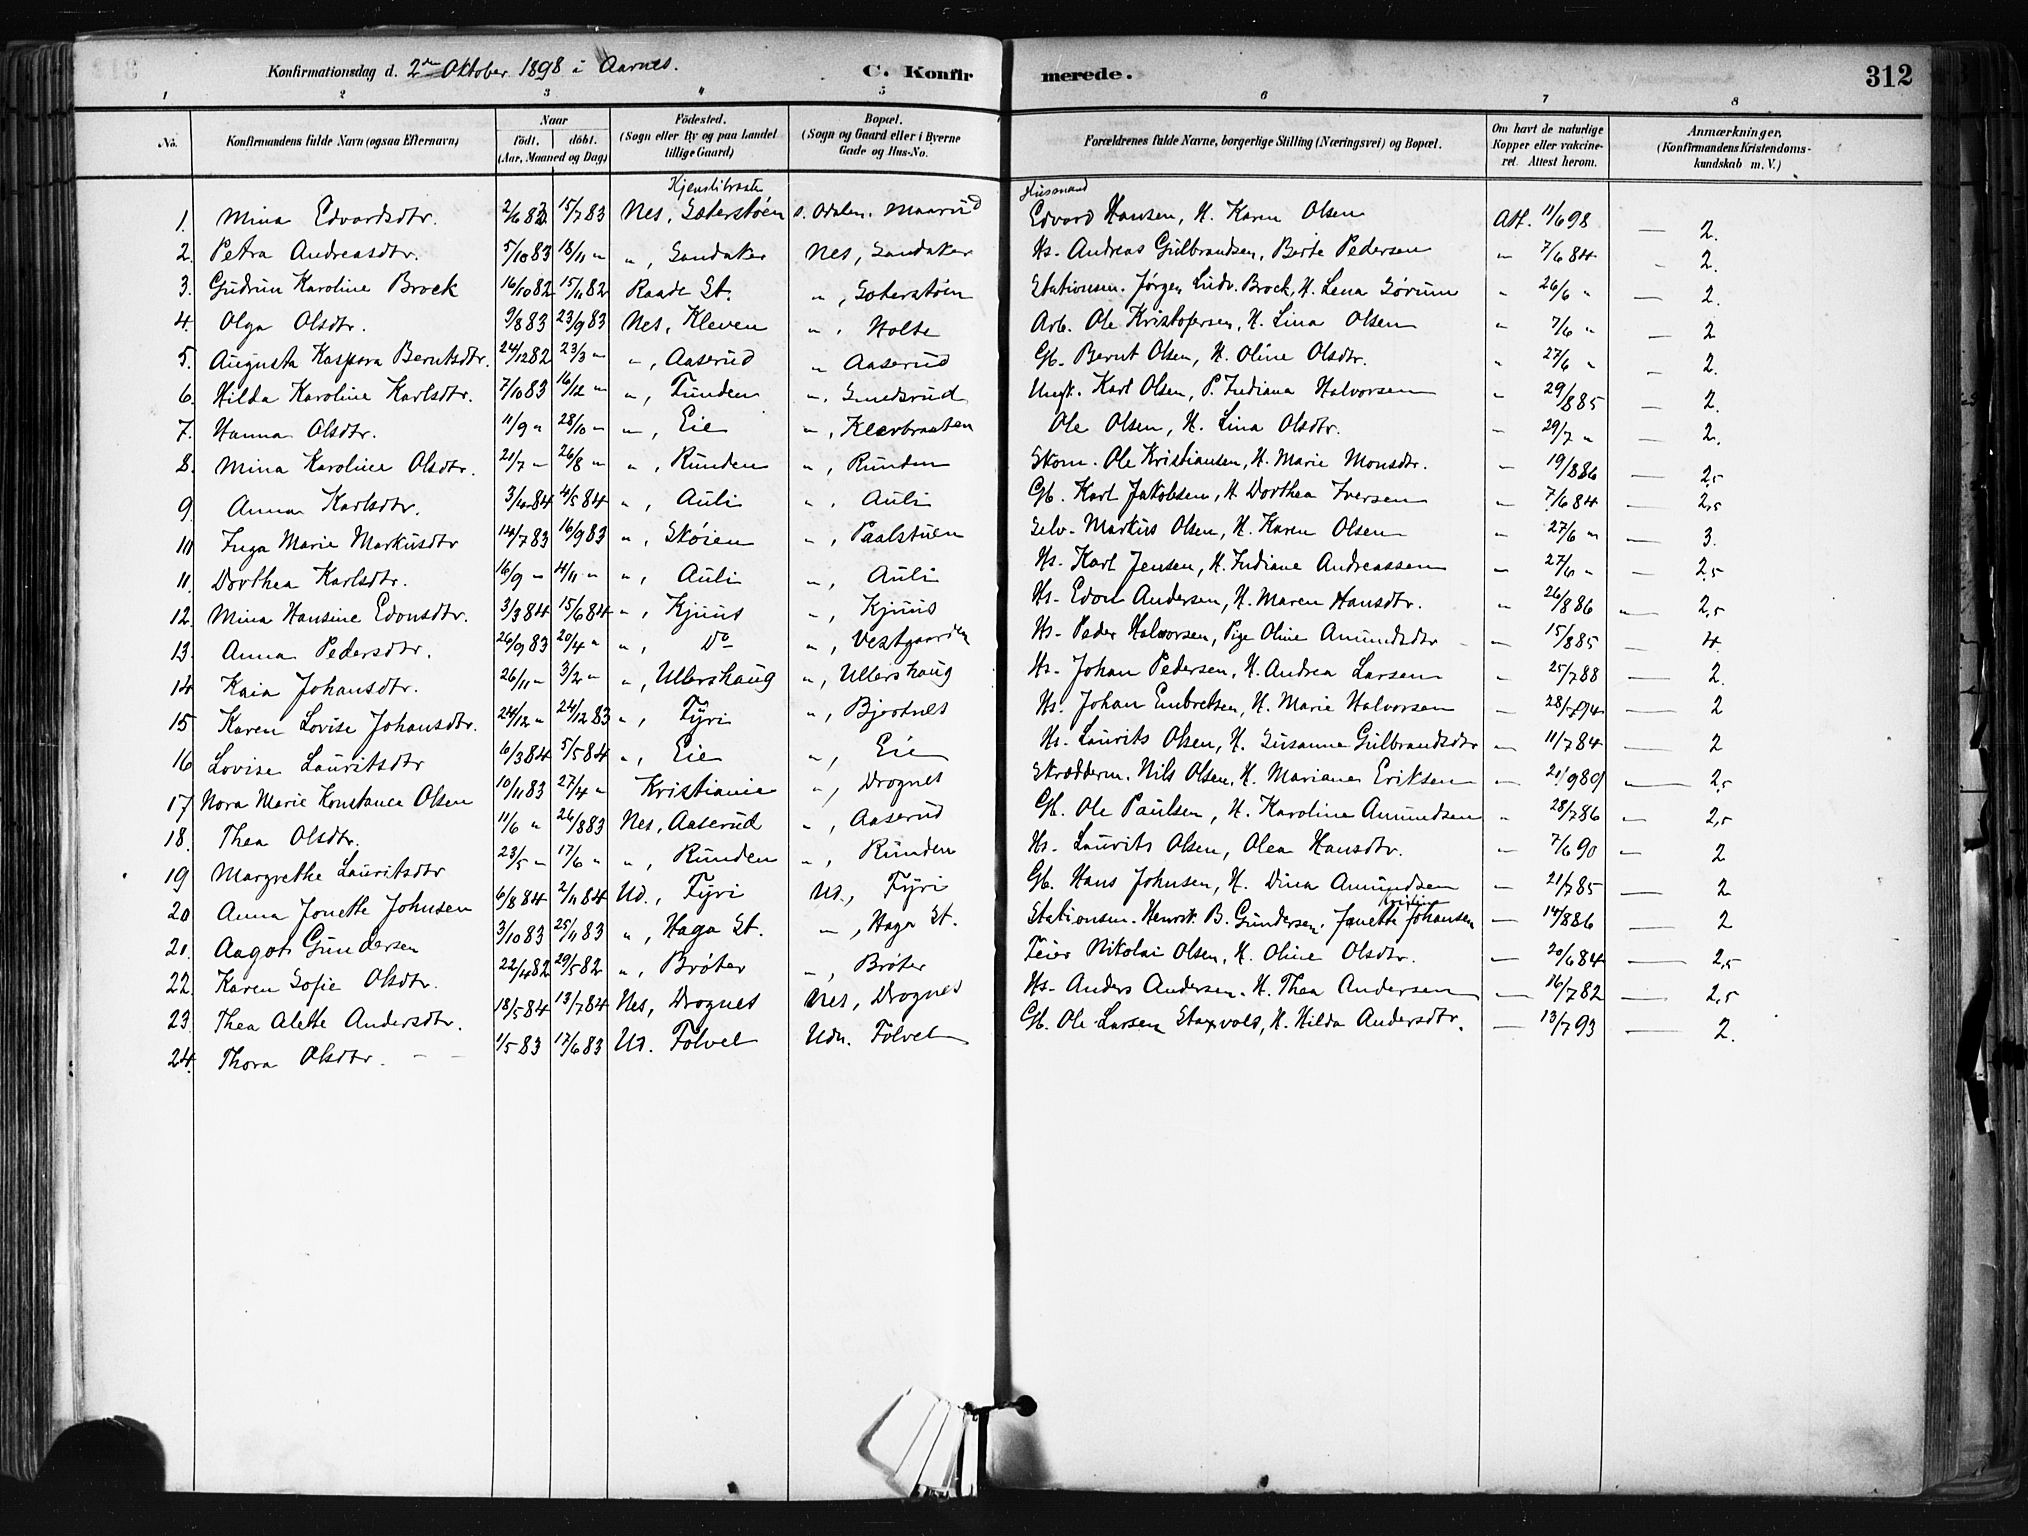 Konfirmationsdag d. 2den Oktober 1898 i Aarnes. C. Konfirmerede. 312
1 2 3 4 5 6 7 8
No. Konfirmandens fulde Navn (ogsaa Efternavn) Naar födt. döbt. (Aar, Maaned og Dag) Födested. (Sogn eller By og paa Landet tillige Gaard) Bopæl. (Sogn og Gaard eller i Byerne Gade og Hus-No. Forældrenes fulde Navne, borgerlige Stilling (Næringsvei) og Bopæl. Om havt de naturlige Kopper eller vaccineret. Attest herom. Anmærkninger, (Konfirmandens Kristendomskundskab m. V.)
1. Mina Edvardsdtr. 2/6 83 15/7 83 Nes, Sæterstøen S. Odalen. Maarud Husmand Edvard Hansen, H. Karen Olsen Att. 11/6 98 — 2.
2. Petra Andreasdtr. 5/10 83 18/11 " ", Sandaker Nes, Sandaker Hs. Andreas Gulbrandsen, Berte Pedersen " 7/6 84 - 2.
3. Gudrun Karoline Brock 16/10 82 15/11 82 Raade St. ", Sæterstøen Stationsm. Jørgen Ludv. Brock, H. Lena Sørum " 26/6 " — 2.
4. Olga Olsdtr. 9/8 83 23/9 83 Nes, Kleven ", Holte Arb. Ole Kristofersen, H. Lina Olsen " 7/6 " — 2
5. Augusta Kaspara Berntsdtr. 24/12 82 23/3 " ", Aaserud " Aaserud Gb. Bernt Olsen, H. Oline Olsdtr. " 27/6 " - 2.
6. Hilda Karoline Karlsdtr. 7/10 83 16/12 " ", Funden ", Smedsrud Ungk. Karl Olsen, P. Indiana Halvorsen " 29/8 85 — 2.
7. Hanna Olsdtr. 11/9 " 28/10 " ", Eie ", Kleverbraaten Ole Olsen, H. Lina Olsdtr. " 29/7 " — 2.
8. Mina Karoline Olsdtr. 21/7 " 26/8 " ", Runden ", Runden Skom. Ole Kristiansen, H. Marie Monsdtr. " 19/8 86 — 2,5
9. Anna Karlsdtr. 3/4 84 4/5 84 ", Auli ", Auli Gb. Karl Jakobsen, H. Dorthea Iversen " 7/6 84 — 2,5
10 Inga Marie Markusdtr 14/7 83 16/9 83 ", Skøien ", Paalstuen Selv. Markus Olsen, H. Karen Olsen " 27/6 " — 3.
11. Dorthea Karlsdtr. 16/9 " 4/11 " ", Auli ", Auli Hs. Karl Jensen, H. Indiane Andreassen " 27/6 " — 2,5
12. Mina Hansine Edonsdtr. 3/3 84 15/6 84 ", Kjuus ", Kjuus Hs. Edon Andersen, H. Maren Hansdtr. " 26/8 86 " — 2,5
13. Anna Pedersdtr. 26/9 83 20/4 " ", Do ", Vestgaarden Hs. Peder Halvorsen, Pige Oline Amundsdtr " 15/8 85 — 4.
14 Kaia Johansdtr. 26/11 " 3/2 " ", Ullershaug ", Ullershaug Hs. Johan Pedersen, H. Andrea Larsen " 25/7 88 — 2.
15 Karen Lovise Johansdtr. 24/12 " 24/12 83 ", Fyri ", Bjertnes Hs. Johan Embretsen, H. Marie Halvorsen " 28/7 94 — 2
16 Lovise Lauritsdtr 6/3 84 5/5 84 ", Eie ", Eie Hs. Laurits Olsen, H. Susanne Gulbrandsdtr " 11/7 84 — 2
17 Nora Marie Konstance Olsen 10/11 83 27/4 " Kristiania ", Drognes Skrædderm. Nils Olsen, H. Mariane Eriksen " 21/9 89 " — 2,5
18. Thea Olsdtr. 11/6 " 26/8 83 Nes, Aaserud ", Aaserud Gb. Ole Paulsen, H. Karoline Amundsen " 28/7 86 " — 2,5
19 Margrethe Lauritsdtr 23/5 " 17/6 " ", Runden ", Runden Hs. Laurits Olsen, Olea Hansdtr. " 7/6 90 — 2
20 Anna Jonette Johnsen 6/8 84 2/11 84 Ud., Fyri Ud., Fyri Gb. Hans Johnsen, H. Dina Amundsen " 21/7 85 — 2
21. Aagot Gundersen 3/10 83 25/11 83 ", Haga St. ", Haga St. Stationsm. Henrik B. Gundersen. Janette Johansen — 14/8 86 — 2
22. Karen Sofie Olsdtr. 22/4 82 29/5 82 ", Brøter ", Brøter Feier Nikolai Olsen, H. Oline Olsdtr. — 20/6 84 — 2,5
23. Thea Alette Andersdtr. 18/5 84 13/7 84 Nes, Drognes Nes, Drognes Hs. Anders Andersen. H. Thea Andersen — 16/7 82 — 2,5
24. Thora Olsdtr. 1/5 83 17/6 83 Ud. Folvel Udn. Folvel Gb. Ole Larsen, H. Hilda Andersdtr. — 13/7 93 — 2.